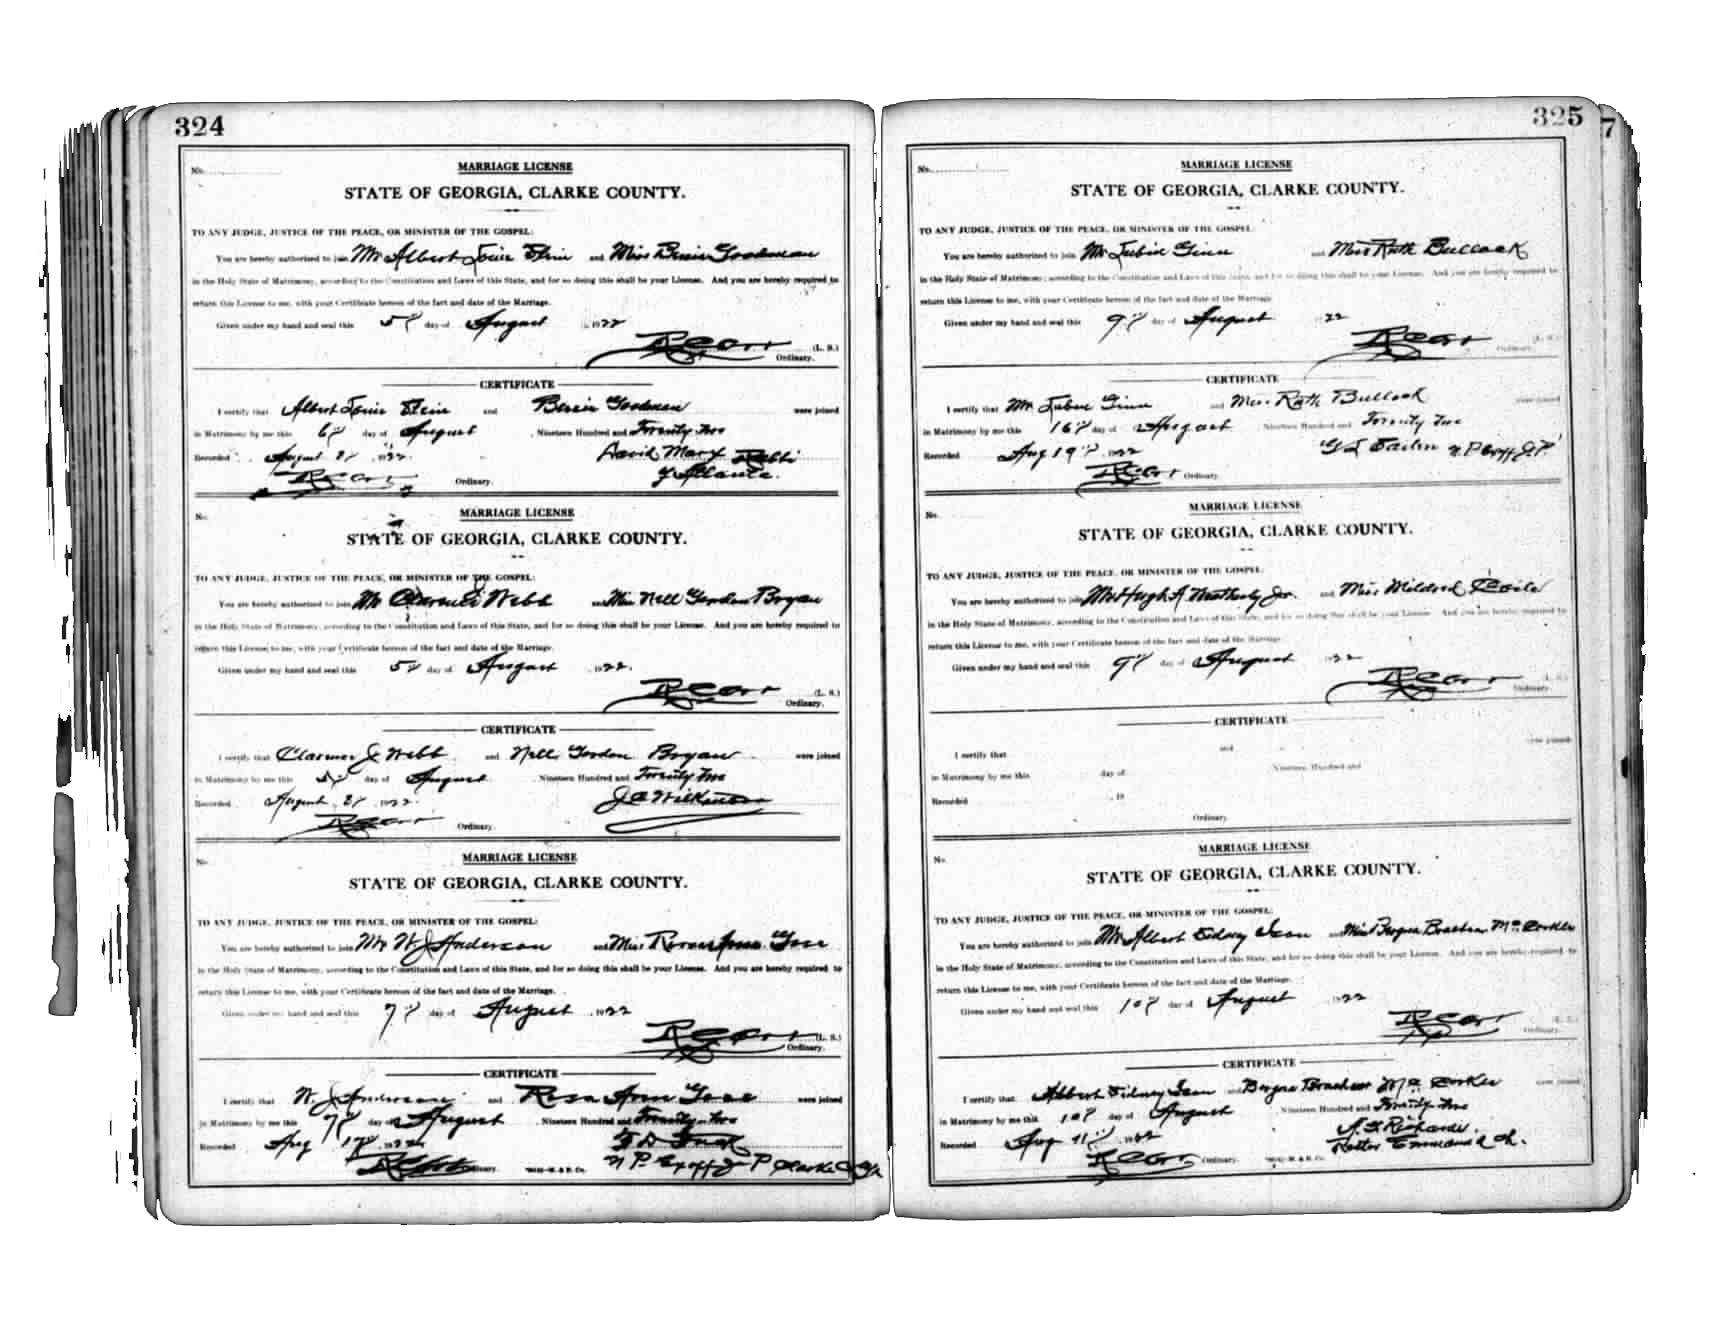 324
No.
MARRIAGE LICENSE
STATE OF GEORGIA, CLARKE COUNTY.
TO ANY JUDGE, JUSTICE OF THE PEACE, OR MINISTER OF THE GOSPEL:
You are hereby authorized to join Mr Albert Louis Stein and Miss Goodman
in the Holy State of Matrimony, according to the Constitution and Laws of this State, and for so doing this shall be your License. And you are hereby required to
return this License to me, with your Certificate hereon of the fact and date of the Marriage.
Given under my hand and seal this 5th day of August 1922
R C Orr (L. S.)
Ordinary.
CERTIFICATE
I certify that Albert Louis Stein and Goodman were joined
in Matrimony by me this 6th day of August Nineteen Hundred and Twenty Two
Recorded August 8th 1922 David Marx Rabbi
R C Orr Ordinary. Atlanta.
No.
MARRIAGE LICENSE
STATE OF GEORGIA, CLARKE COUNTY.
TO ANY JUDGE, JUSTICE OF THE PEACE, OR MINISTER OF THE GOSPEL:
You are hereby authorized to join Mr J Webb and Miss Nell Gordon Bryan
in the Holy State of Matrimony, according to the Constitution and Laws of this State, and for so doing this shall be your License. And you are hereby required to
return this License to me, with your Certificate hereon of the fact and date of the Marriage.
Given under my hand and seal this 5th day of August 1922.
R C Orr (L. S.)
Ordinary.
CERTIFICATE
I certify that J Webb and Nell Gordon Bryan were joined
in Matrimony by me this day of August Nineteen Hundred and Twenty Two
Recorded August 8th 1922. J C Wilkinson
R C Orr Ordinary.
No.
MARRIAGE LICENSE
STATE OF GEORGIA, CLARKE COUNTY.
TO ANY JUDGE, JUSTICE OF THE PEACE, OR MINISTER OF THE GOSPEL:
You are hereby authorized to join Mr W J Anderson and Miss Rosa Ann
in the Holy State of Matrimony, according to the Constitution and Laws of this State, and for so doing this shall be your License. And you are hereby required to
return this License to me, with your Certificate hereon of the fact and date of the Marriage.
Given under my hand and seal this 7th day of August 1922
R C Orr (L. S.)
Ordinary.
CERTIFICATE
I certify that W J Anderson and Rosa Ann were joined
in Matrimony by me this 7th day of August Nineteen Hundred and Twenty Two
Recorded Aug 17th 1922
R C Orr Ordinary. N P Exoff J P Clarke Co Ga
325
No.
MARRIAGE LICENSE
STATE OF GEORGIA, CLARKE COUNTY.
TO ANY JUDGE, JUSTICE OF THE PEACE, OR MINISTER OF THE GOSPEL:
You are hereby authorized to join Mr Ginn and Miss Ruth Bullock
in the Holy State of Matrimony, according to the Constitution and Laws of this State, and for so doing this shall be your License. And you are hereby required to
return this License to me, with your Certificate hereon of the fact and date of the Marriage
Given under my hand and seal this 9th day of August 22
R C Orr (L. S.)
Ordinary.
CERTIFICATE
I certify that Mr Ginn and Miss Ruth Bullock were joined
in Matrimony by me this 16th day of August Nineteen Hundred and Twenty Two
Recorded Aug 19th 1922 N P Exoff J P
R C Orr Ordinary.
No.
MARRIAGE LICENSE
STATE OF GEORGIA, CLARKE COUNTY.
TO ANY JUDGE, JUSTICE OF THE PEACE, OR MINISTER OF THE GOSPEL:
You are hereby authorized to join Mr Hugh A Jr. and Miss Mildred
in the Holy State of Matrimony, according to the Constitution and Laws of this State, and for so doing this shall be your License. And you are hereby required to
return this License to me, with your Certificate hereon of the fact and date of the Marriage
Given under my hand and seal this 9th day of August 1922
R C Orr (L. S.)
Ordinary.
CERTIFICATE
I certify that and were joined
in Matrimony by me this day of Nineteen Hundred and
Recorded , 19
Ordinary.
No.
MARRIAGE LICENSE
STATE OF GEORGIA, CLARKE COUNTY.
TO ANY JUDGE, JUSTICE OF THE PEACE, OR MINISTER OF THE GOSPEL:
You are hereby authorized to join Mr Albert Sidney and Miss McCorkle
in the Holy State of Matrimony, according to the Constitution and Laws of this State, and for so doing this shall be your License. And you are hereby required to
return this License to me, with your Certificate hereon of the fact and date of the Marriage.
Given under my hand and seal this 10th day of August 1922
R C Orr (L. S.)
Ordinary.
CERTIFICATE
I certify that Albert Sidney and McCorkle were joined
in Matrimony by me this 10th day of August Nineteen Hundred and Twenty Two
Recorded Aug 11th 1922 Richards.
R C Orr Ordinary. Rector Emmanuel Ch.